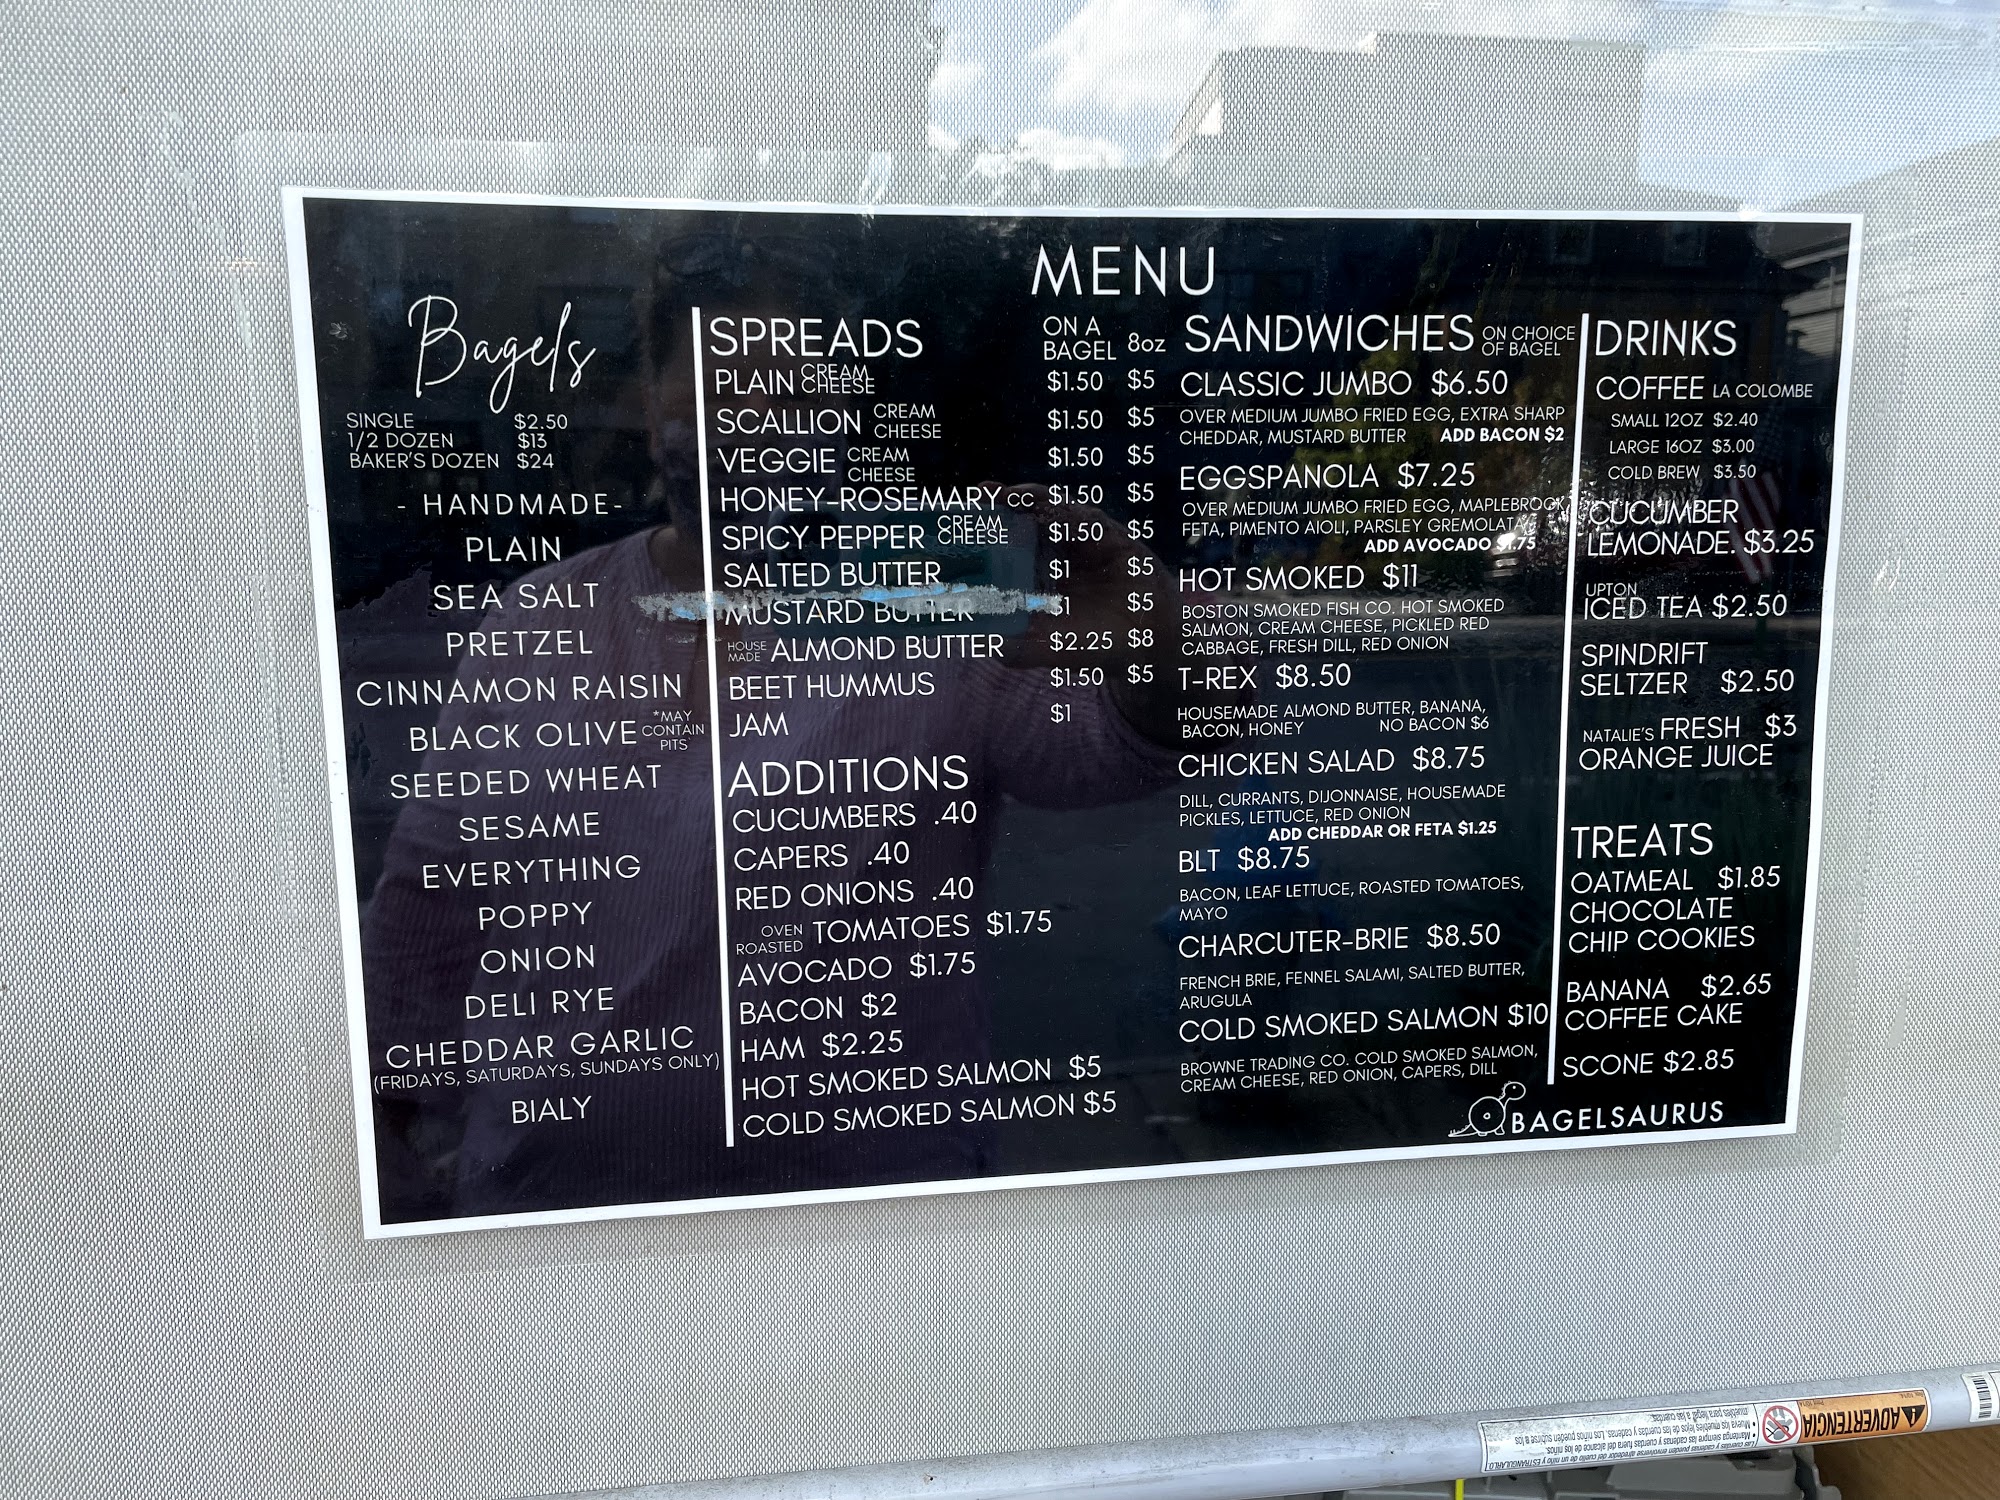 MENU
Bagels
SINGLE $2.50
1/2 DOZEN $13
BAKER'S DOZEN $24
- HANDMADE-
PLAIN
SEA SALT
PRETZEL
CINNAMON RAISIN
BLACK OLIVE *MAY CONTAIN PITS
SEEDED WHEAT
SESAME
EVERYTHING
POPPY
ONION
DELI RYE
CHEDDAR GARLIC
(FRIDAYS, SATURDAYS, SUNDAYS ONLY)
BIALY
SPREADS ON A BAGEL 8oz
PLAIN CREAM CHEESE $1.50 $5
SCALLION CREAM CHEESE $1.50 $5
VEGGIE CREAM CHEESE $1.50 $5
HONEY-ROSEMARY CC $1.50 $5
SPICY PEPPER CREAM CHEESE $1.50 $5
SALTED BUTTER $1 $5
MUSTARD BUTTER $1 $5
HOUSE MADE ALMOND BUTTER $2.25 $8
BEET HUMMUS $1.50 $5
JAM $1
ADDITIONS
CUCUMBERS .40
CAPERS .40
RED ONIONS .40
OVEN ROASTED TOMATOES $1.75
AVOCADO $1.75
BACON $2
HAM $2.25
HOT SMOKED SALMON $5
COLD SMOKED SALMON $5
SANDWICHES ON CHOICE OF BAGEL
CLASSIC JUMBO $6.50
OVER MEDIUM JUMBO FRIED EGG, EXTRA SHARP
CHEDDAR, MUSTARD BUTTER ADD BACON $2
EGGSPANOLA $7.25
OVER MEDIUM JUMBO FRIED EGG, MAPLEBROOK
FETA, PIMENTO AIOLI, PARSLEY GREMOLATA
ADD AVOCADO $1.75
HOT SMOKED $11
BOSTON SMOKED FISH CO. HOT SMOKED
SALMON, CREAM CHEESE, PICKLED RED
CABBAGE, FRESH DILL, RED ONION
T-REX $8.50
HOUSEMADE ALMOND BUTTER, BANANA,
BACON, HONEY NO BACON $6
CHICKEN SALAD $8.75
DILL, CURRANTS, DIJONNAISE, HOUSEMADE
PICKLES, LETTUCE, RED ONION
ADD CHEDDAR OR FETA $1.25
BLT $8.75
BACON, LEAF LETTUCE, ROASTED TOMATOES,
MAYO
CHARCUTER-BRIE $8.50
FRENCH BRIE, FENNEL SALAMI, SALTED BUTTER,
ARUGULA
COLD SMOKED SALMON $10
BROWNE TRADING CO. COLD SMOKED SALMON,
CREAM CHEESE, RED ONION, CAPERS, DILL
DRINKS
COFFEE LA COLOMBE
SMALL 12OZ $2.40
LARGE 16OZ $3.00
COLD BREW $3.50
CUCUMBER
LEMONADE. $3.25
UPTON
ICED TEA $2.50
SPINDRIFT
SELTZER $2.50
NATALIE'S FRESH $3
ORANGE JUICE
TREATS
OATMEAL $1.85
CHOCOLATE
CHIP COOKIES
BANANA $2.65
COFFEE CAKE
SCONE $2.85
BAGELSAURUS
ADVERTENCIA